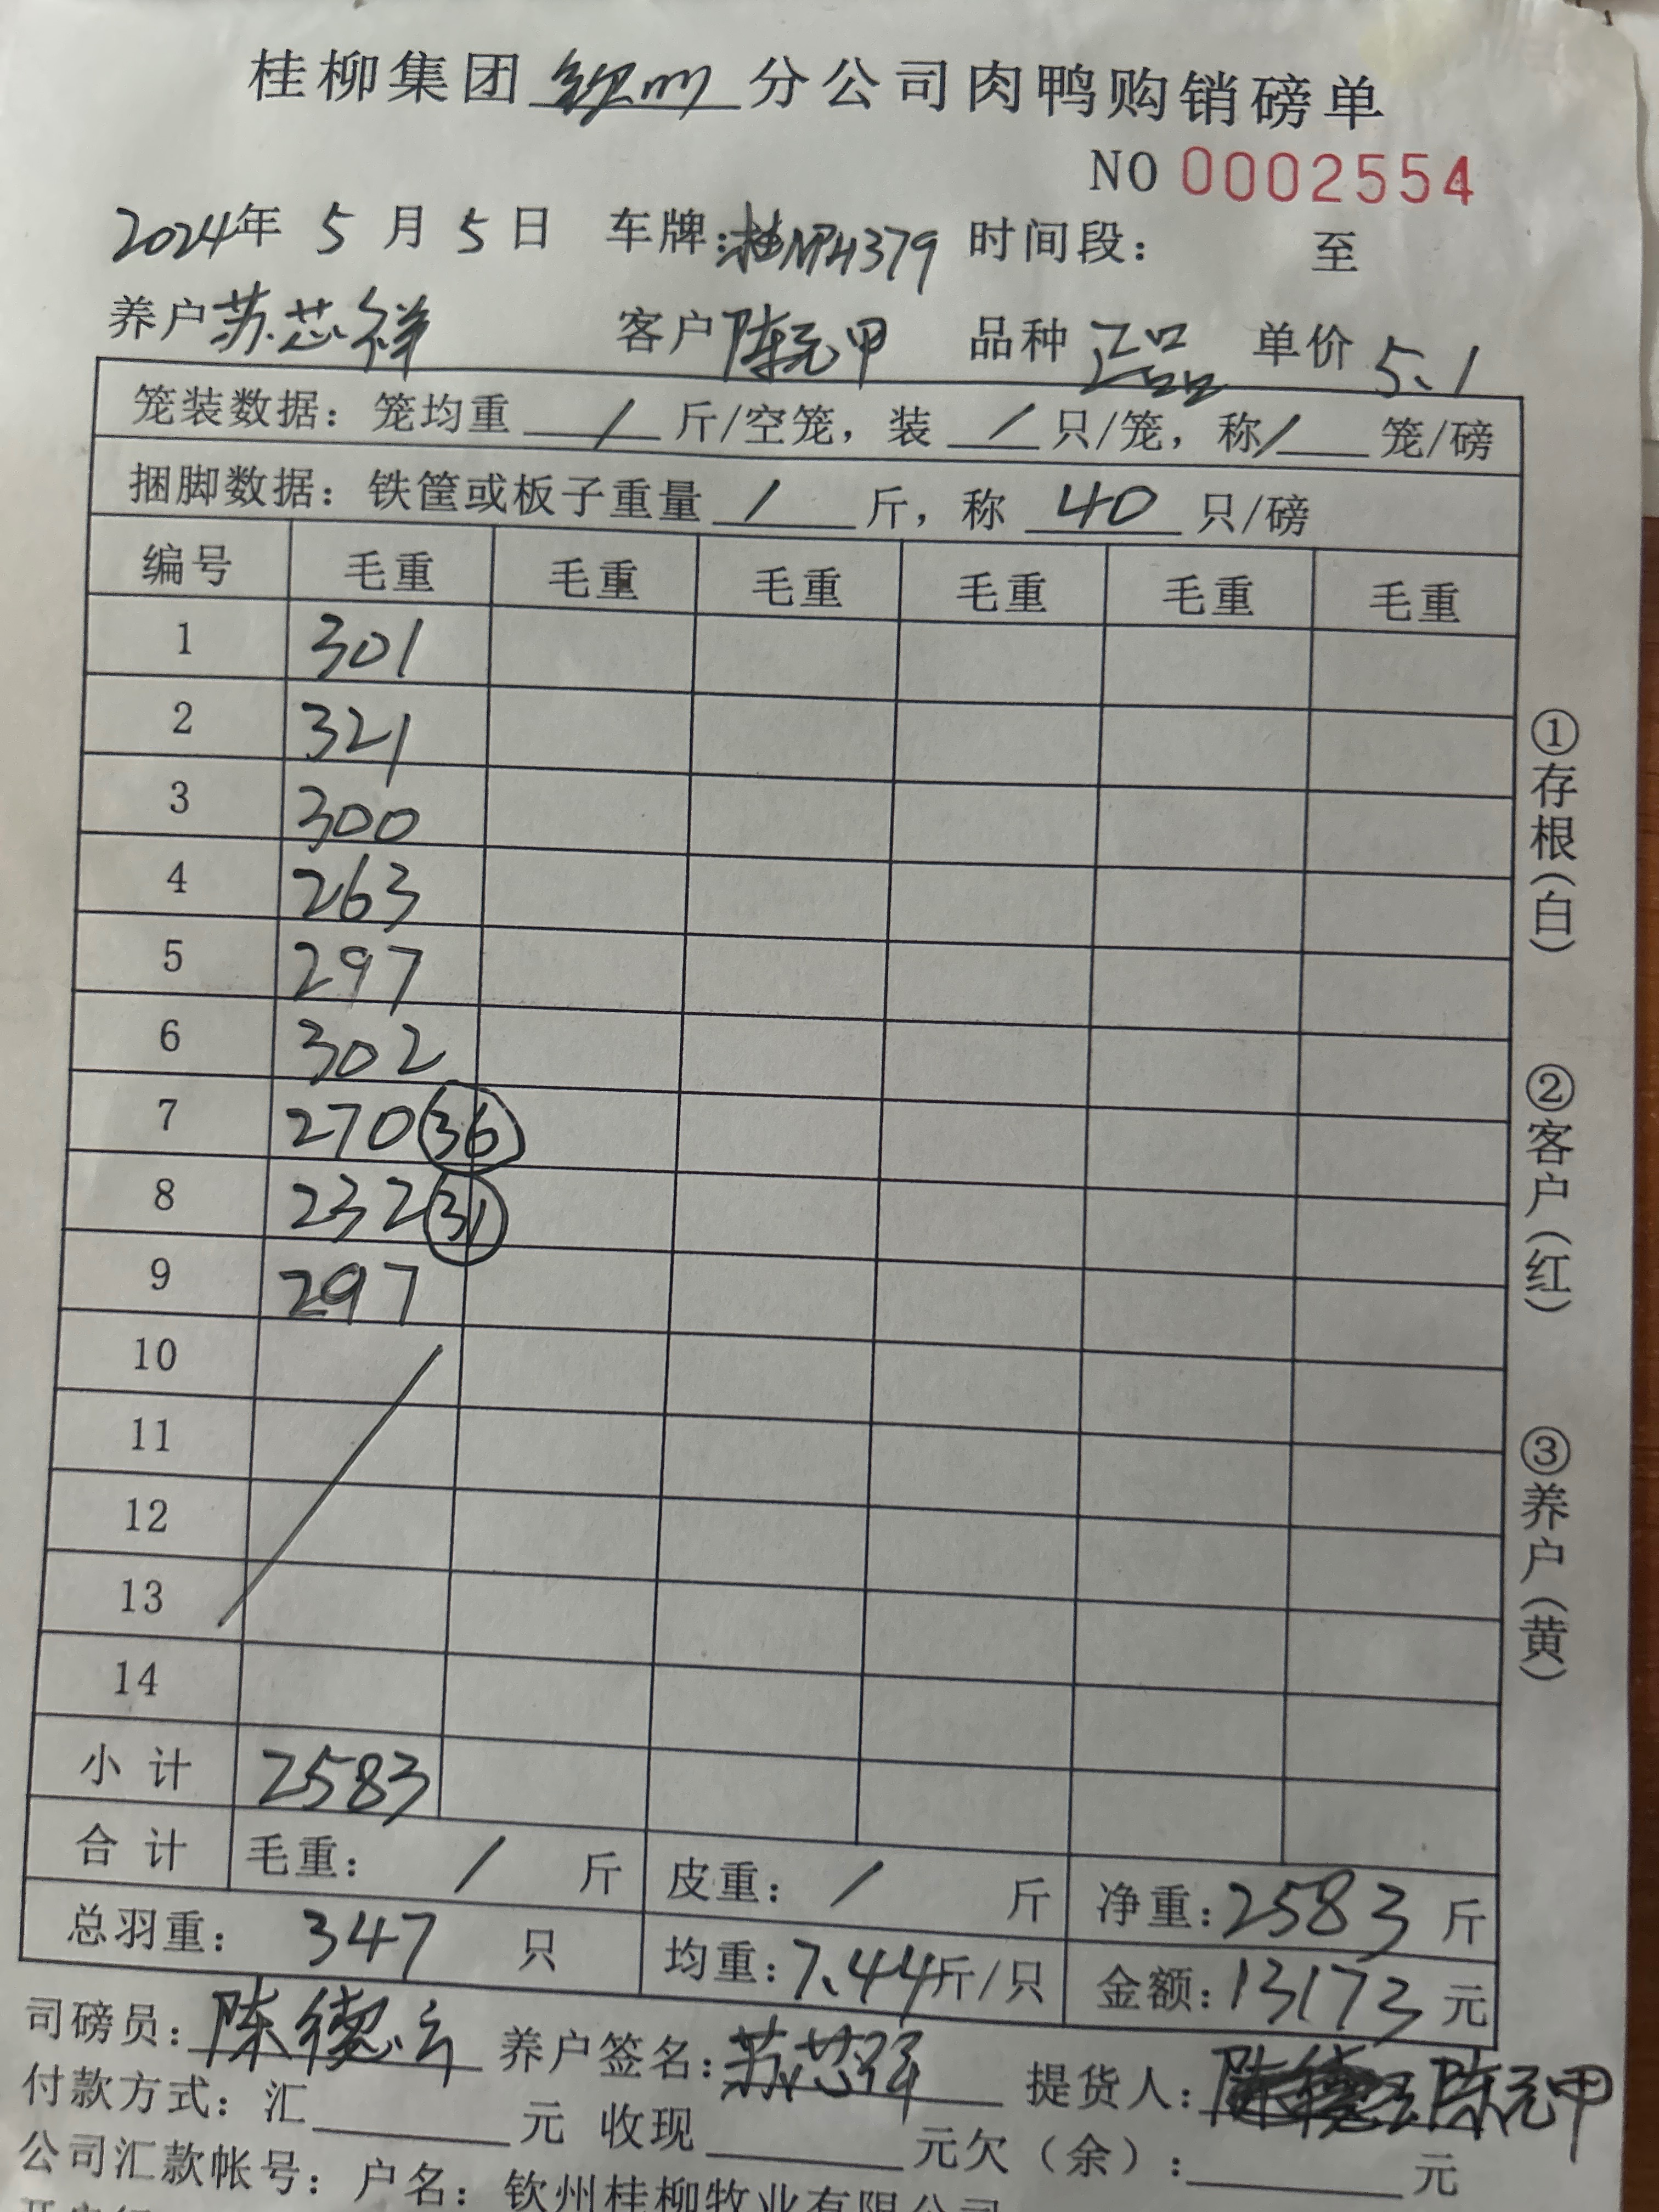 桂柳集团钦州分公司肉鸭购销磅单
NO 0002554
2024年 5 月 5 日 车牌：桂NP4379 时间段： 至
养户 苏芯祥 客户 陈元甲 品种 正品 单价 5.1
笼装数据：笼均重 / 斤/空笼，装 / 只/笼，称 / 笼/磅
捆脚数据：铁筐或板子重量 / 斤，称 40 只/磅
编号 毛重 毛重 毛重 毛重 毛重 毛重
1 301
2 321
3 300
4 263
5 297
6 302
7 270 36
8 232 31
9 297
10
11
12
13
14
小计 2583
合计 毛重： / 斤 皮重： / 斤 净重：2583 斤
总羽重： 347 只 均重：7.44斤/只 金额：13173 元
司磅员：陈德立 养户签名：苏芯祥 提货人：陈元甲
付款方式：汇 元 收现 元欠（余）： 元
公司汇款帐号：户名：钦州桂柳牧业有限公司
①存根（白） ②客户（红） ③养户（黄）